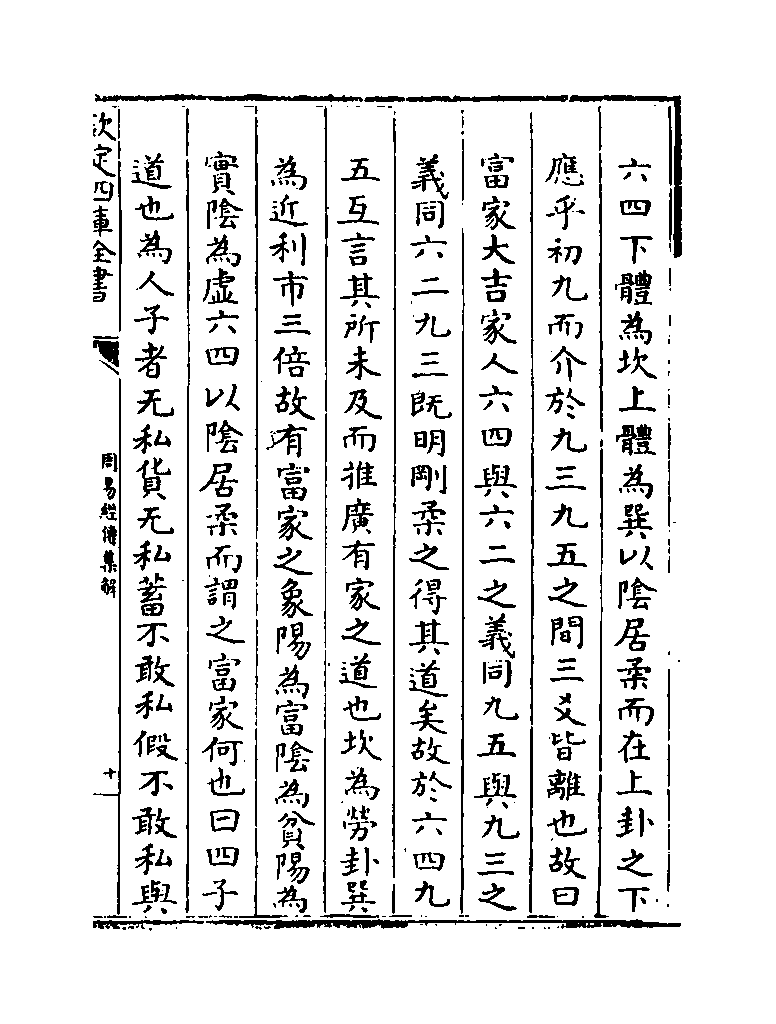 六四下體為坎上體為巽以陰居柔而在上卦之下
應乎初九而介於九三九五之間三爻皆離也故曰
富家大吉家人六四與六二之義同九五與九三之
義同六二九三既明剛柔之得其道矣故於六四九
五互言其所未及而推廣有家之道也坎為勞卦巽
為近利市三倍故有富家之象陽為富陰為貧陽為
實陰為虛六四以陰居柔而謂之富家何也曰四子
道也為人子者无私貨无私蓄不敢私假不敢私與
欽定四庫全書
周易經傳集解
十一